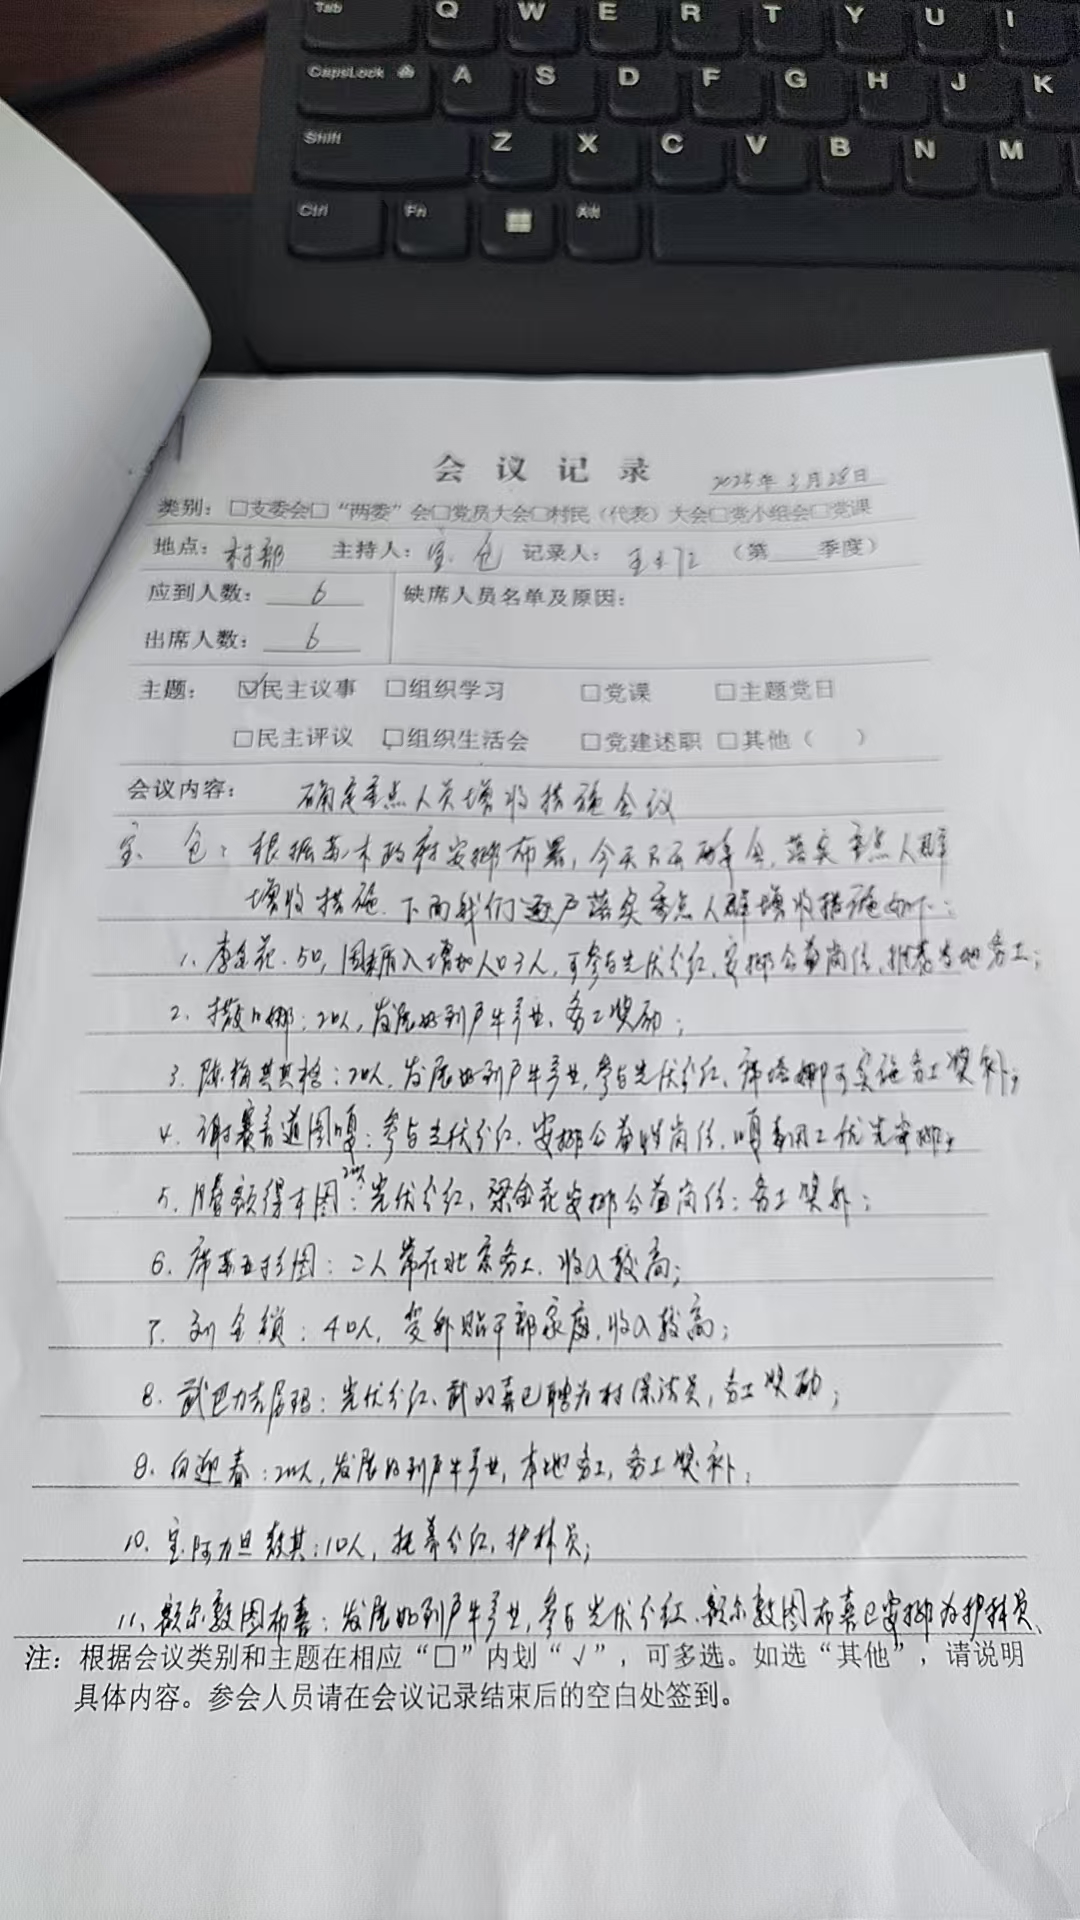 Tab Q W E R T Y U I
CapsLock A S D F G H J K
Shift Z X C V B N M
Ctrl Fn Alt
会议记录
2025年3月28日
类别：□支委会□“两委”会□党员大会□村民（代表）大会□党小组会□党课
地点：村部 主持人：宝仓 记录人： （第 季度）
应到人数：6 缺席人员名单及原因：
出席人数：6
主题：☑民主议事 □组织学习 □党课 □主题党日
□民主评议 □组织生活会 □党建述职 □其他（ ）
会议内容：确定重点人员增收措施会议
宝仓：根据苏木政府安排布署，今天召开 会，落实重点人群
增收措施．下面我们逐户落实重点人群增收措施如下：
1、李金花．5口, 增加人口3人，可参与光伏分红，安排公益岗位，推荐当地务工；
2、撒日娜：2口人，发展 到户牛产业、务工奖励；
3、陈 其其格：2口人，发展 到户牛产业，参与光伏分红、 可实施务工奖补；
4、谢 道图嘎：参与光伏分红．安排公益性岗位． 用工优先安排；
5、 额得木图：2口人 光伏分红、梁金花安排公益岗位：务工奖补；
6、席 图：二人常在北京务工．收入较高；
7、刘金锁：4口人， 干部家庭，收入较高；
8、武巴力吉尼玛：光伏分红、武 已聘为村保洁员，务工奖励；
9、白迎春：2口人，发展 到户牛产业，本地务工，务工奖补；
10、宝阿力旦敖其：1口人，托养分红，护林员；
11、额尔敦图布喜：发展 到户牛产业，参与光伏分红、额尔敦图布喜已安排为护林员、
注：根据会议类别和主题在相应“□”内划“√”，可多选。如选“其他”，请说明
具体内容。参会人员请在会议记录结束后的空白处签到。